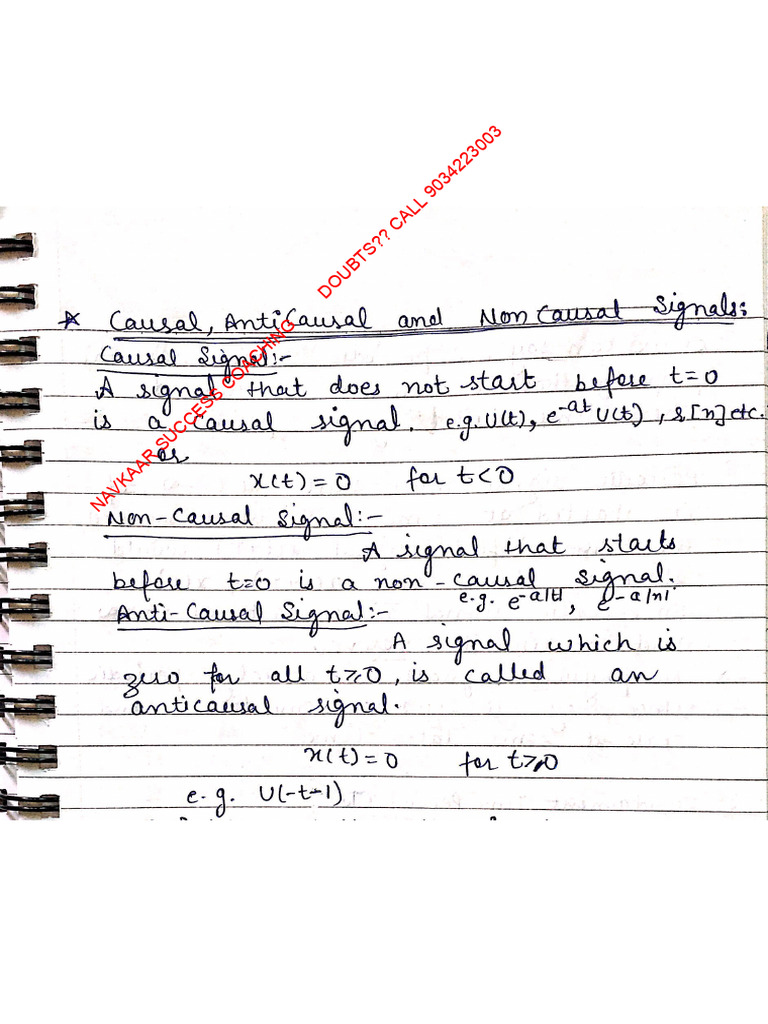 * Causal, AntiCausal and Non Causal Signals:
Causal Signal:-
A signal that does not start before t=0
is a causal signal. e.g. U(t), e^-at U(t), s[n] etc.
or
x(t) = 0 for t<0
Non-Causal Signal:-
A signal that starts
before t=0 is a non-causal signal.
e.g. e^-a|t|, e^-a|n|.
Anti-Causal Signal:-
A signal which is
zero for all t≥0, is called an
anticausal signal.
x(t) = 0 for t≥0
e.g. U(-t-1)
NAVKAAR SUCCESS COACHING DOUBTS?? CALL 9034223003